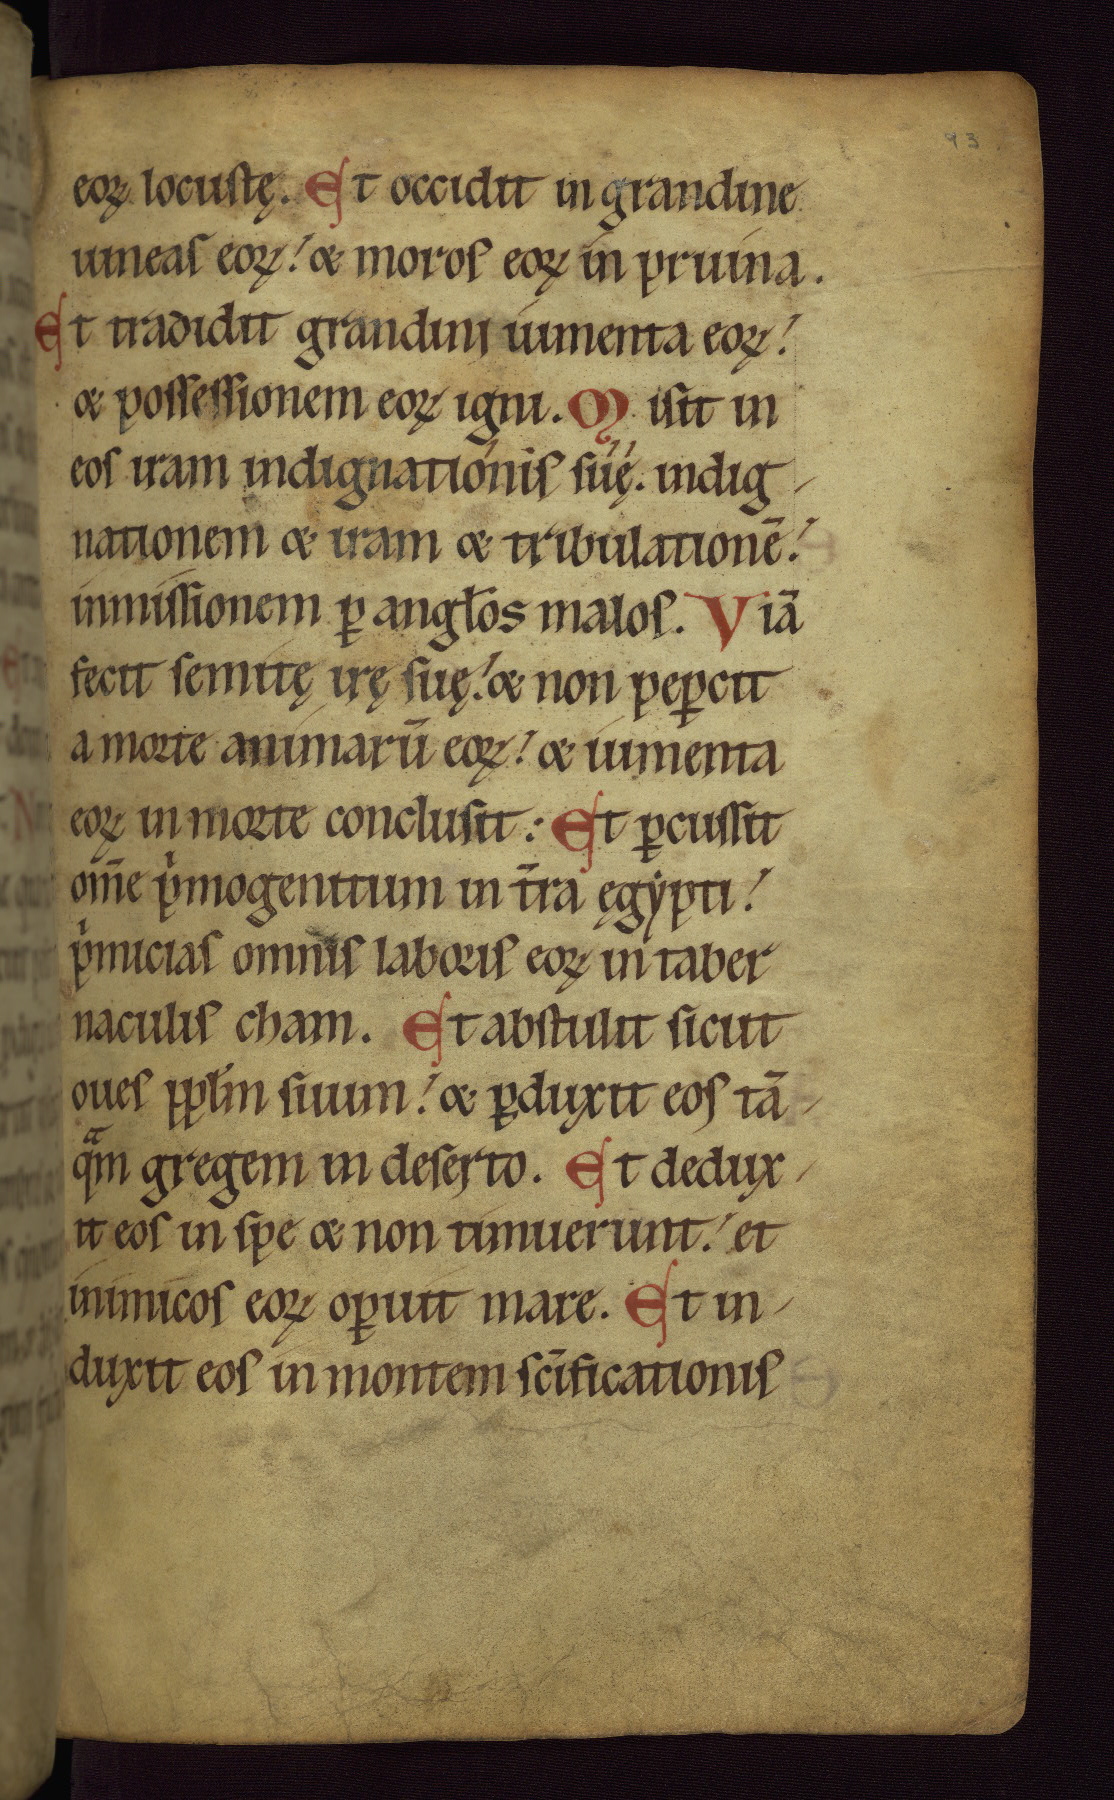 93
eoꝝ locustę. Et occidit in grandine
uineas eoꝝ! & moros eoꝝ in pruina.
Et tradidit grandini iumenta eoꝝ!
& possessionem eoꝝ igni. Misit in
eos iram indignationis suę. indig-
nationem & iram & tribulationē!
inmissionem ꝑ angłos malos. Viā
fecit semitę irę suę! & non peꝑcit
a morte animarū eoꝝ! & iumenta
eoꝝ in morte conclusit: Et ꝑcussit
om̄e pͥmogenitum in t̄ra ęgẏpti!
pͥmicias omnis laboris eoꝝ in taber
naculis cham. Et abstulit sicut
oues ppłm suum! & ꝑduxit eos tā-
qͣm gregem in deserto. Et dedux-
it eos in spe & non timuerunt! et
inimicos eoꝝ oꝑuit mare. Et in-
duxit eos in montem sc̄ificationis